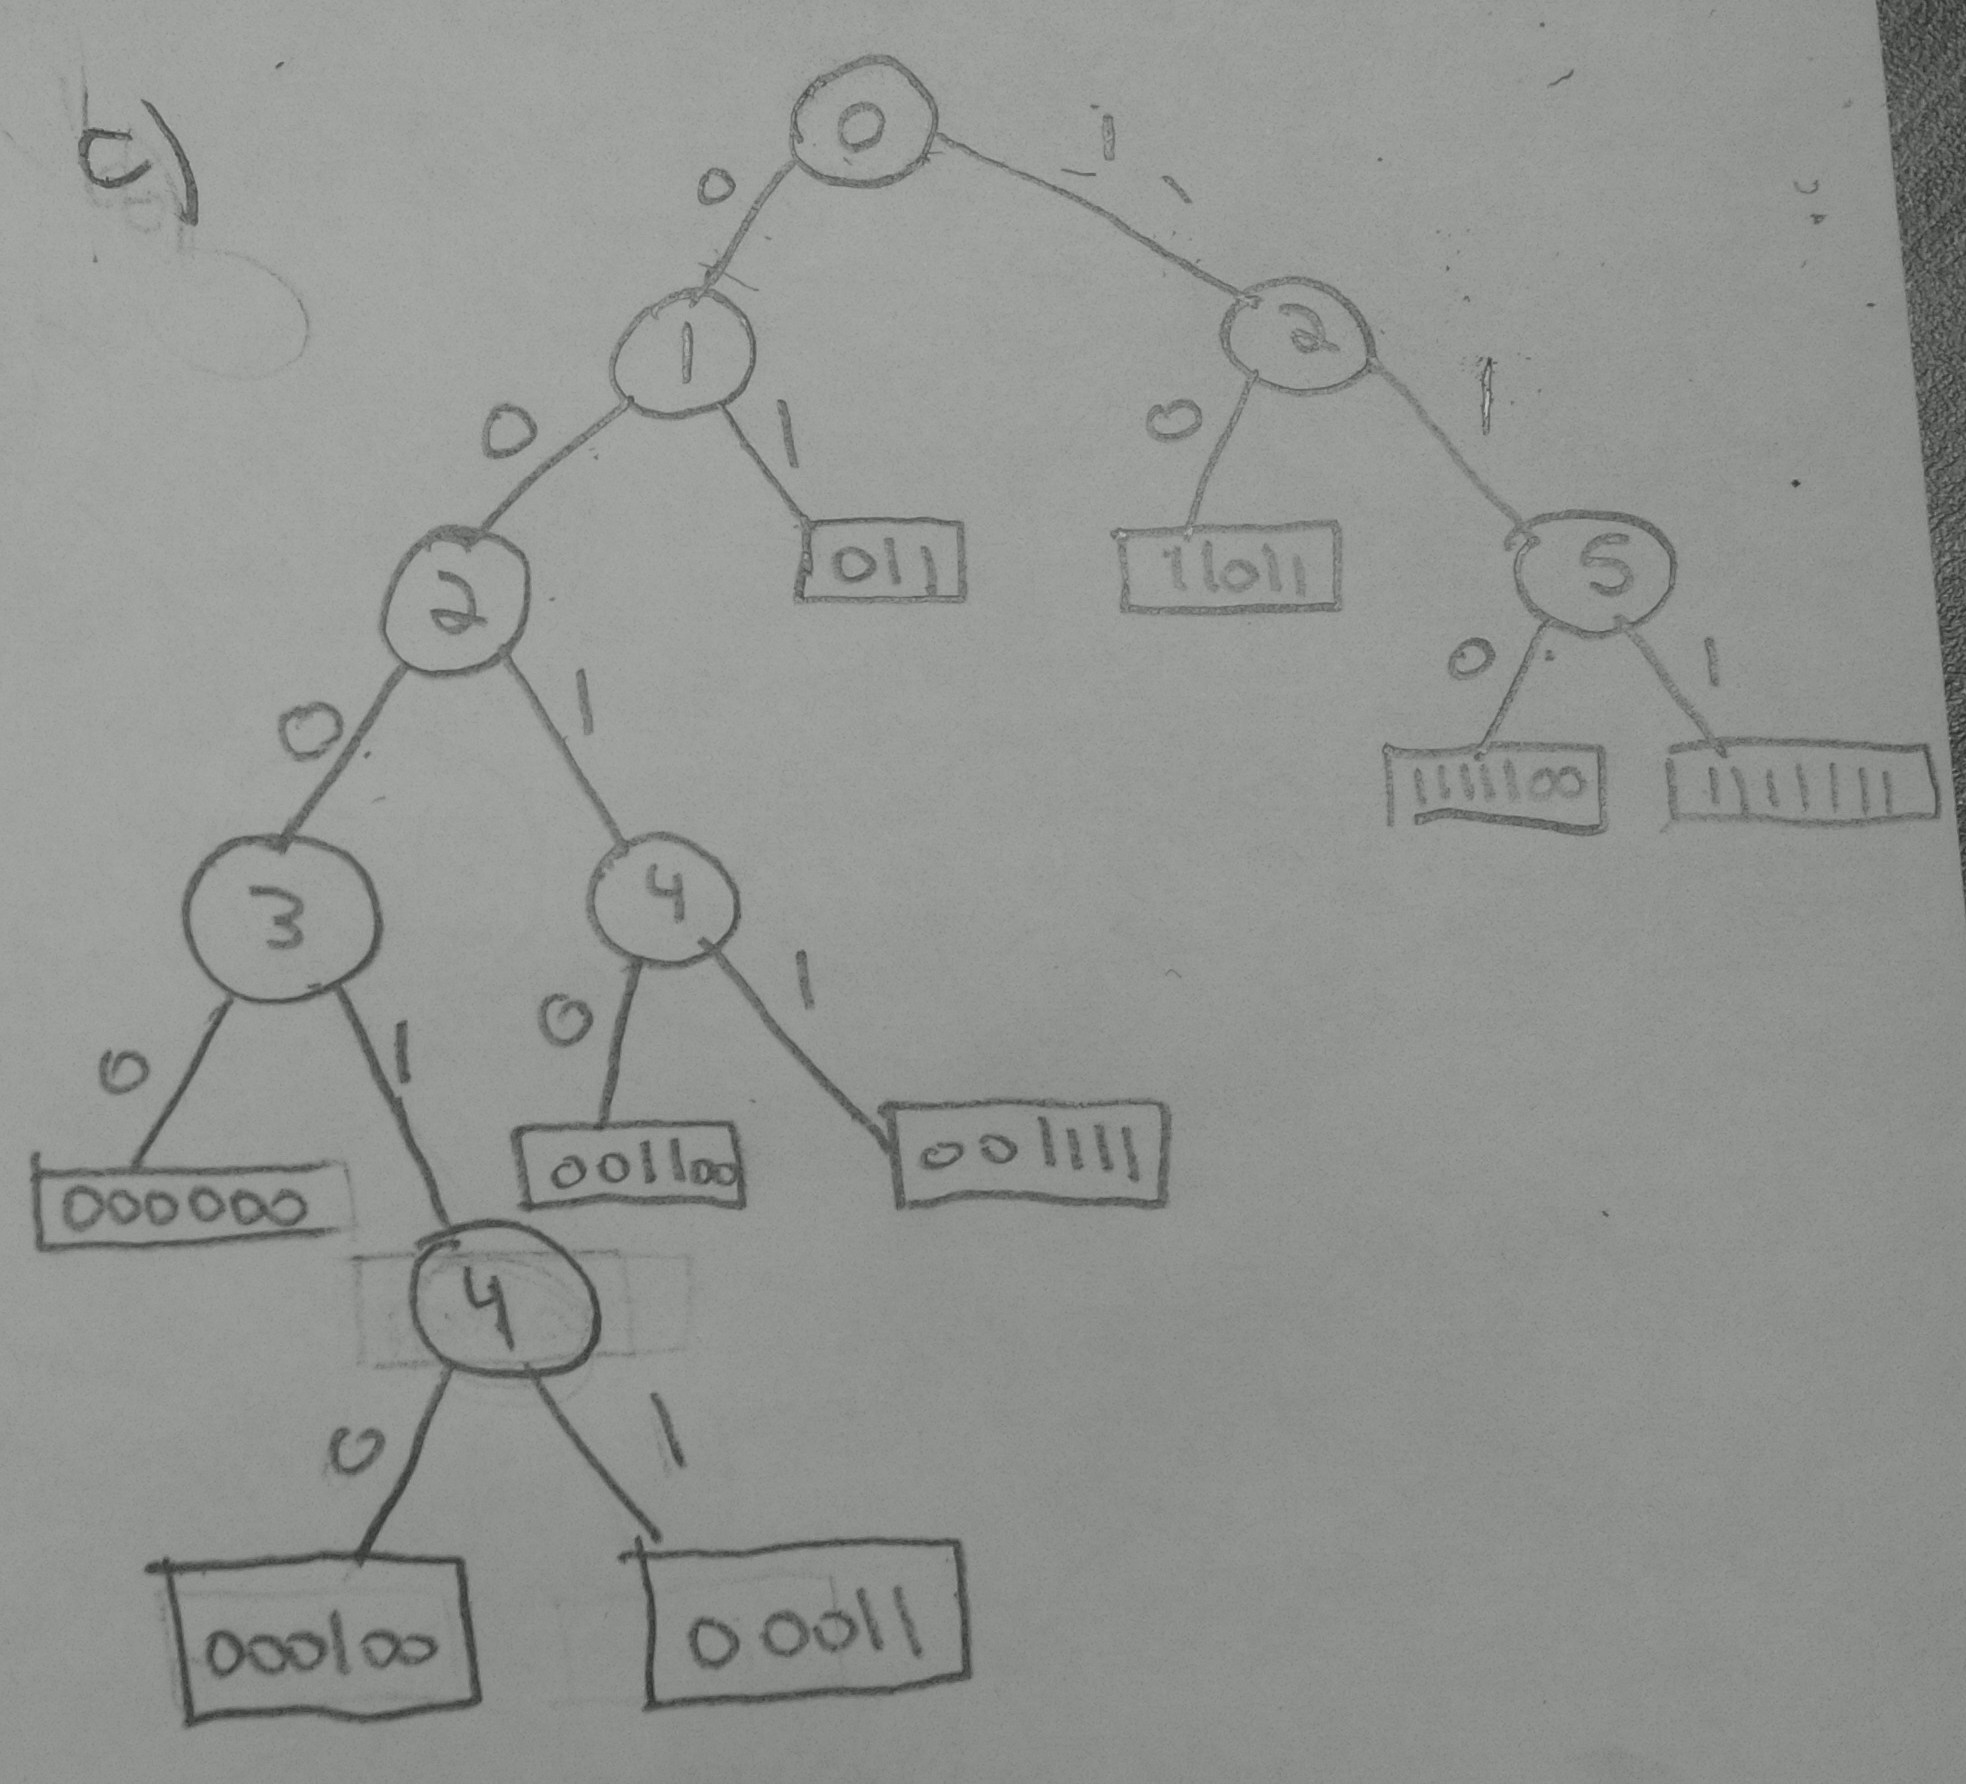 c)
0
0 1
1 2
0 1 0 1
2 011 11011 5
0 1 0 1
1111100 1111111
3 4
0 1 0 1
000000 001100 001111
4
0 1
000100 00011